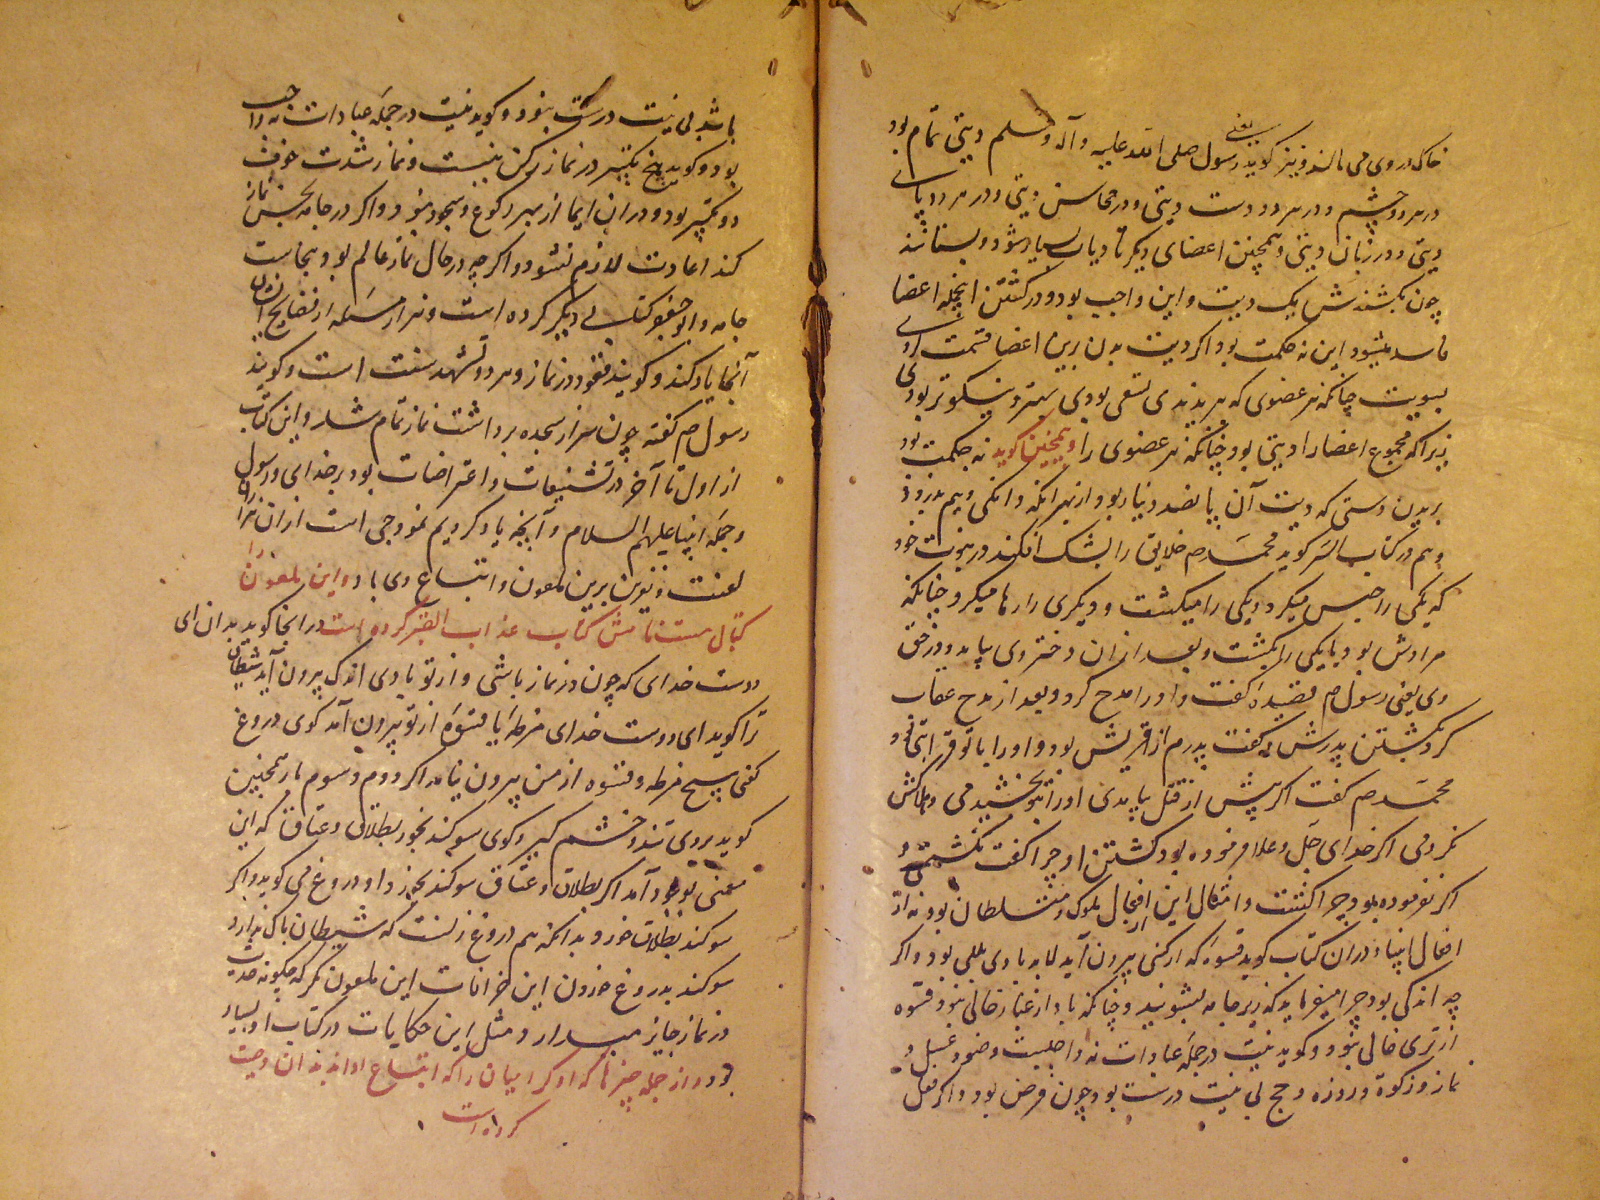 خاک در روی می مالند و نیز گوید رسول صلی الله علیه و آله و سلم دیتی تمام بود
در هر دو چشم و در هر دو دست دیتی و در محاسن دیتی و در هر دو پای
دیتی و در زبان دیتی و همچنین اعضای دیگر تا دیات بسیار شود و بستانند
چون بکشندش یک دیت و این واجب بود و در کشتن اینجمله اعضا
فاسد میشود این نه حکمت بود اگر دیت بدن برین اعضا قسمت کردی
بسویت چنانکه هر عضوی که ببریدندی بودی نیکوتر بودی
زیرا که مجموع اعضا را دیتی بود چنانکه هر عضوی را و همچنین گوید نه حکمت بود
بریدن دستی که دیت آن پانصد دینار بود از بهر آنکه دانکی و نیم بدزدد
و هم در کتاب السر گوید محمد صم خلایق را بشک افکند در نبوت خود
که یکی را حبس میکرد و یکی را میکشت و دیگری را رها میکرد چنانکه
مرادش بود تا یکی را بکشت و بعد از ان دختر وی بیامد و در حق
وی یعنی رسول صم قصیدۀ گفت و او را مدح کرد و بعد از مدح عتاب
کرد بکشتن پدرش که گفت پدرم از قریش بود و او را با تو قرابتی بود
محمد صم گفت اگر پیش از قتل بیامدی او را بتو بخشیدمی و هلاکش
نکردمی اگر خدای جل و علا فرموده بود کشتن او چرا گفت نکشتمی و
اگر نفرموده بود چرا کشت و امثال این افعال ملوک و سلطان بود نه از
افعال انبیا و در ان کتاب گوید فسوه که از کسی بیرون آید لابد با وی بللی بود و اگر
چه اندکی بود چرا میفرماید که زیر جامه بشویید و چنانکه باد از غبار خالی نبود فسوه
از تری خالی نبود و گوید نیت در جمله عبادات نه واجبست وضو و غسل و
نماز و زکوة و روزه و حج بی نیت درست بود چون فرض بود و اگر نفل
باشد بی نیت درست نبود و گوید نیت در جمله عبادات نه واجب
بود و گوید هیچ تکبیر در نماز رکن نیست و نماز شدت خوف
دو تکبیر بود و در ان ایما از بهر رکوع و سجود نبود و اگر در جامه نجس نماز
کند اعادت لازم نشود و اگر چه در حال نماز عالم بود بنجاست
جامه و ابو جعفر کتابی دیگر کرده است و هزار مسئله از فضایح ایشان
آنجا یاد کند و گویند قعود در نماز و هر دو تشهد سنت است و گویند
رسول صم گفته چون سر از سجده برداشت نماز تمام شد و این کتاب
از اول تا آخر در تشنیعات و اعتراضات بود بر خدای و رسول
و جمله انبیا علیهم السلام و آنچه یاد کردیم نموذجی است از ان هزار
لعنت و نفرین برین ملعون و اتباع وی باد و این ملعون را
کتابی هست نامش کتاب عذاب القبر کرده است در آنجا گوید بدان ای
دوست خدای که چون در نماز باشی و از تو بادی اندک بیرون آید شیطان
ترا گوید ای دوست خدای ضرطۀ یا فسوۀ از تو بیرون آمد گوی دروغ
گفتی هیچ ضرطه و فسوه از من بیرون نیامد اگر دوم و سوم بار همچنین
گوید بروی تند و خشم گیر و گوی سوگند بخور بطلاق و عتاق که این
معنی بوجود آمد اگر بطلاق و عتاق سوگند بخورد او دروغ می گوید و اگر
سوگند بطلاق خورد بدانکه هم دروغ زنست که شیطان باک ندارد
سوگند بدروغ خوردن این خرافات این ملعون نگر که چگونه حدث
در نماز جایز میدارد و مثل این حکایات در کتاب او بسیار
بود و از جمله چیزها که او کرامیان را که اتباع اواند بدان وصیت
کرده است